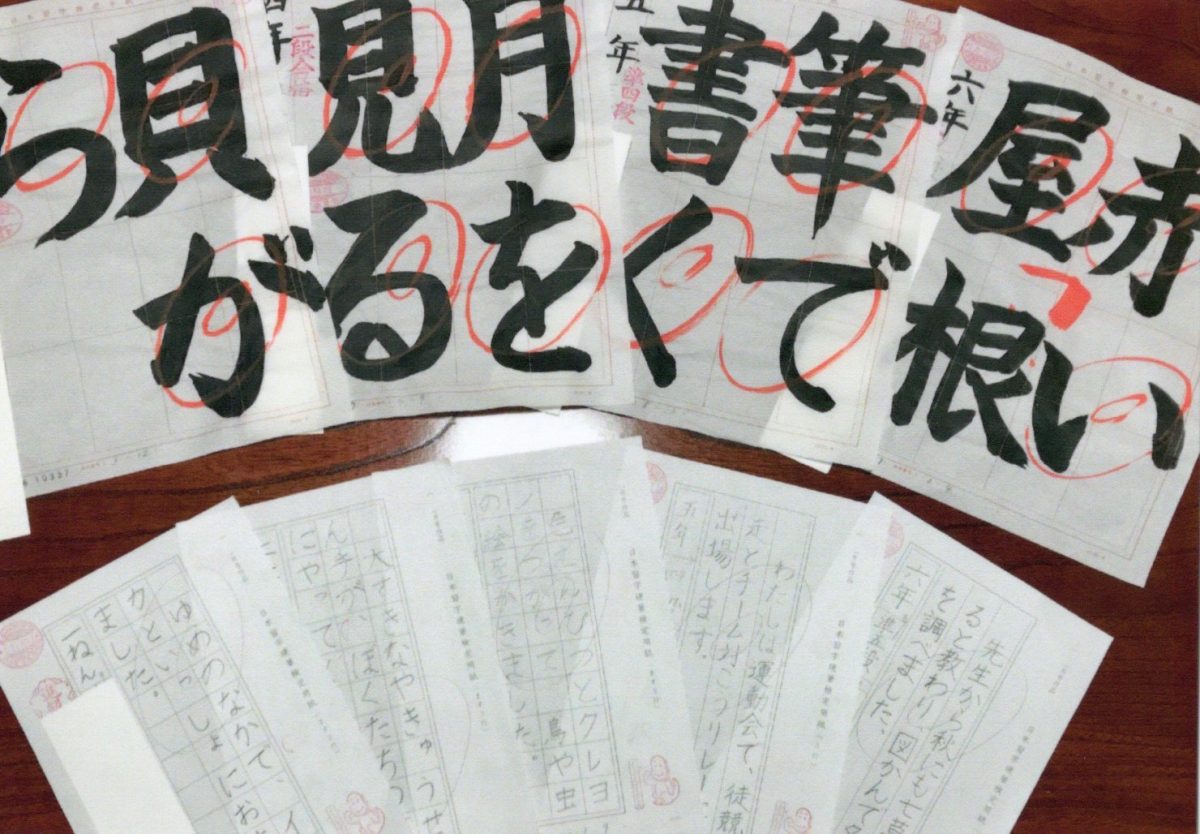 赤い
屋根
六年
筆で
書く
五年
準四段
月を
見る
四年
二段合格
貝が
ら
10337
先生から秋にも七草
ると教わり、図かんで
を調べました。
六年 準五段
わたしは運動会で、徒競
走とチーム対こうリレー
出場します。
五年
色えんぴつとクレヨ
ンをつかって、鳥や虫
の絵をかきました。
大すきなやきゅうせ
ん手が、ぼくたちの
にやって
ゆめのなかで、イ
カといっしょにお
ました。
一ねん